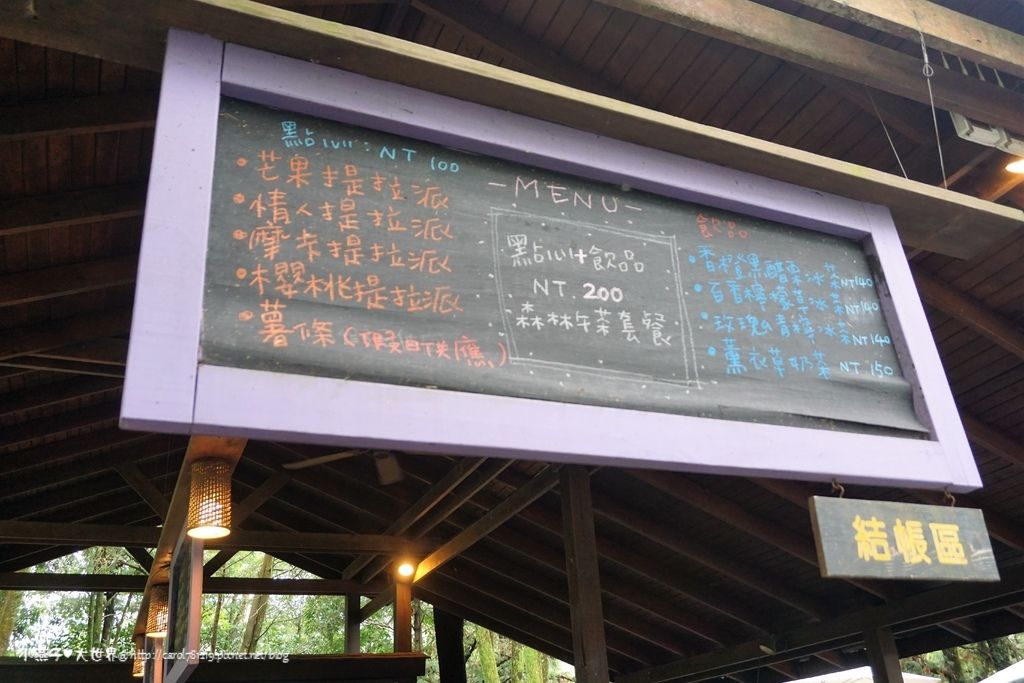 點心: NT 100
•芒果提拉派
•情人提拉派
•摩卡提拉派
•櫻桃提拉派
•薯條(假日供應)
-MENU-
點心+飲品
NT. 200
森林午茶套餐
飲品
•香橙果醋栗冰茶NT140
•百香檸檬草冰茶NT140
•玫瑰青檸冰茶NT140
•薰衣草奶茶 NT 150
結帳區